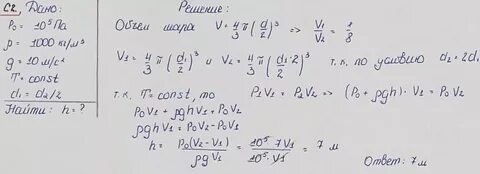 С2. Дано:
P₀ = 10⁵ Па
ρ = 1000 кг/м³
g = 10 м/с²
T = const
d₁ = d₂/2
Найти: h = ?
Решение:
Объем шара V = 4/3 π (d/2)³ ⇒ V₁/V₂ = 1/8
V₁ = 4/3 π (d₁/2)³ и V₂ = 4/3 π (d₁·2/2)³ т.к. по условию d₂ = 2d₁
т.к. T = const, то P₁V₁ = P₂V₂ ⇒ (P₀ + ρgh)·V₁ = P₀V₂
P₀V₁ + ρghV₁ = P₀V₂
ρghV₁ = P₀V₂ - P₀V₁
h = P₀(V₂ - V₁)/ρgV₁ = 10⁵·7V₁/10⁵·V₁ = 7 м
Ответ: 7 м